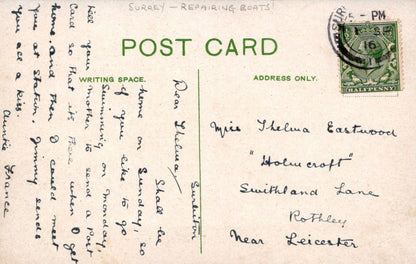 SURREY - REPAIRING BOATS!
POST CARD
WRITING SPACE.
ADDRESS ONLY.
HALFPENNY
SUR
5 - PM
16
Surbiton
Dear Thelma/
Shall be
home on Sunday, so
if you like to go
swimming on Monday,
tell your mother to send a Post
Card so that its there when I get
home and then I could meet
you at Station. Jimmy sends
you all a kiss.
Auntie France
Miss Thelma Eastwood
"Holmcroft"
Swithland Lane
Rothley
Near Leicester